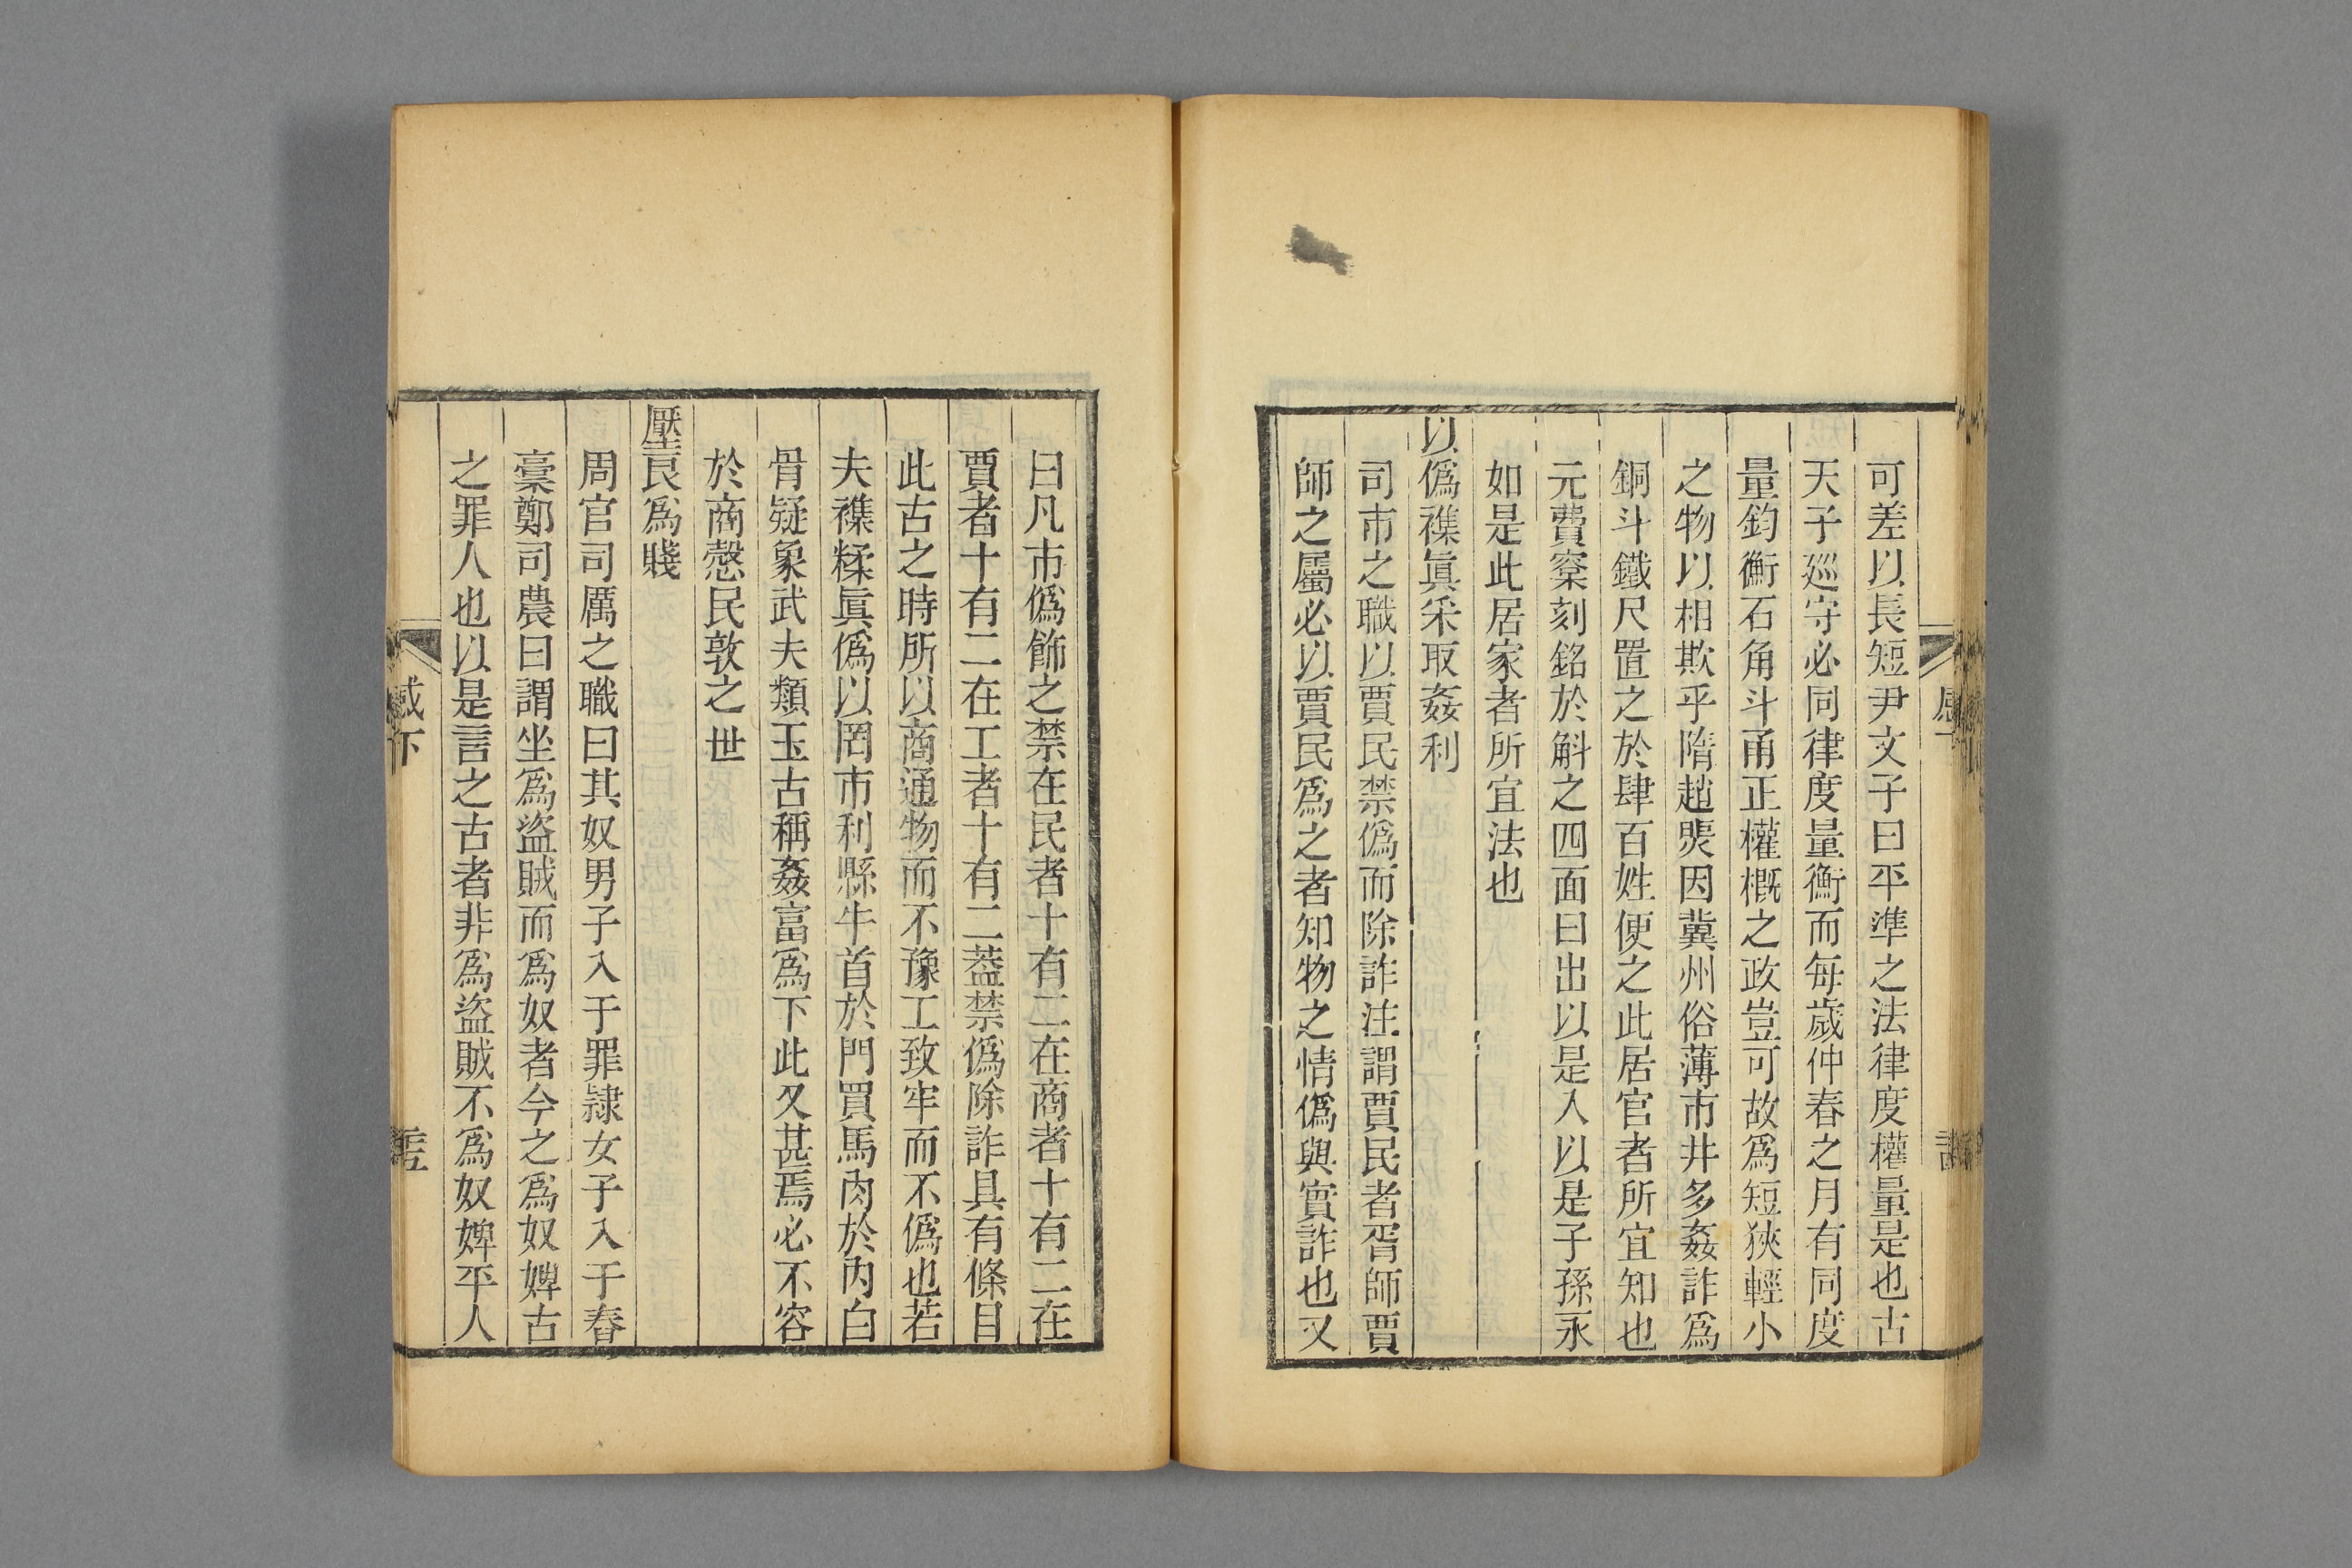 可差以長短尹文子曰平準之法律度權量是也古
天子廵守必同律度量衡而每歲仲春之月有同度
量鈞衡石角斗甬正權槪之政豈可故爲短狹輕小
之物以相欺乎隋趙煚因冀州俗薄市井多姦詐爲
銅斗鐵尺置之於肆百姓便之此居官者所宜知也
元費寀刻銘於斛之四面曰出以是入以是子孫永
如是此居家者所宜法也
以僞襍眞釆取姦利
司市之職以賈民禁僞而除詐注謂賈民者胥師賈
師之屬必以賈民爲之者知物之情僞與實詐也又
曰凡市僞飾之禁在民者十有二在商者十有二在
賈者十有二在工者十有二葢禁僞除詐具有條目
此古之時所以商通物而不豫工致牢而不僞也若
夫襍糅眞僞以罔市利縣牛首於門買馬肉於內白
骨疑象武夫類玉古稱姦富爲下此又甚焉必不容
於商愨民敦之世
壓良爲賤
周官司厲之職曰其奴男子入于罪隷女子入于舂
稾鄭司農曰謂坐爲盜賊而爲奴者今之爲奴婢古
之罪人也以是言之古者非爲盜賊不爲奴婢平人
感下